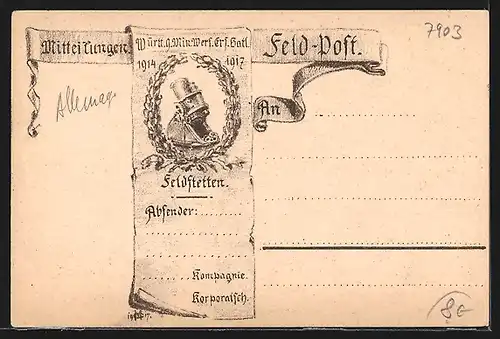 7903
Mitteilungen.
Württ. Min. Werf. Ers. Batl.
Feld-Post.
1914 1917
Allemag
An
Feldstetten.
Absender:
Kompagnie.
Korporalsch.
80